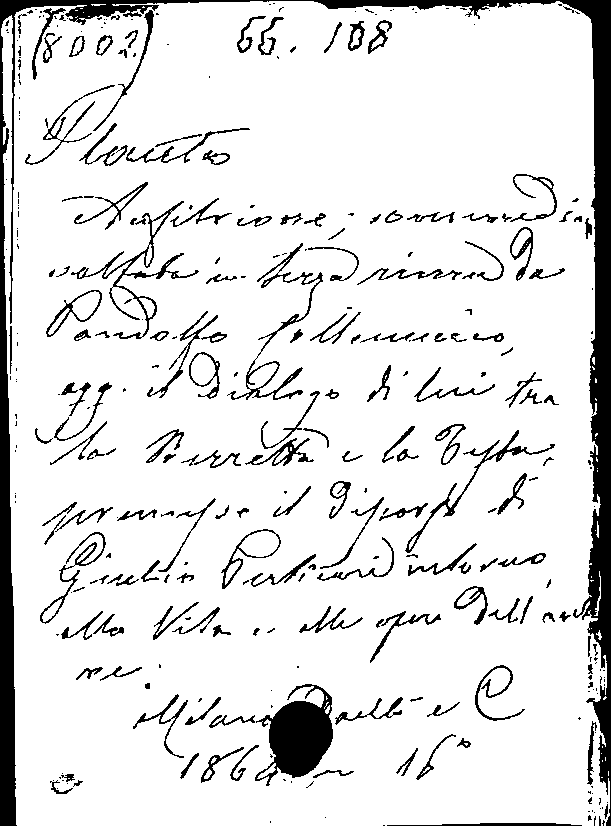 (8002) 66. 108
Plauto
Anfitrione; commedia
voltata in terza rima da
Pandolfo Collenuccio,
agg. il Dialogo di lui tra
la Berretta e la Testa,
premesso il discorso di
Giulio Perticari intorno
alla Vita e alle opere dell' auto
re.
Milano Daelli e C
1864 in 16°